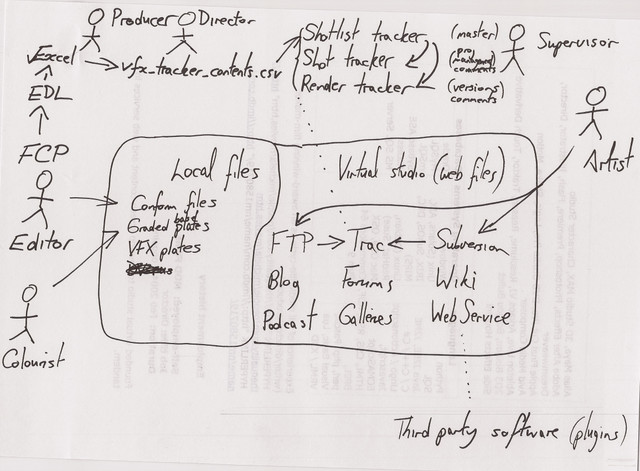 Producer Director
Excel
vfx_tracker_contents.csv
Shotlist tracker
(master)
Shot tracker
comments
Render tracker
(versions)
comments
Supervisor
EDL
FCP
Editor
Colourist
Artist
Local files
Conform files
Graded plates
VFX plates
Virtual studio (web files)
FTP Trac Subversion
Blog Forums Wiki
Podcast Galleries Web Service
Third party software (plugins)